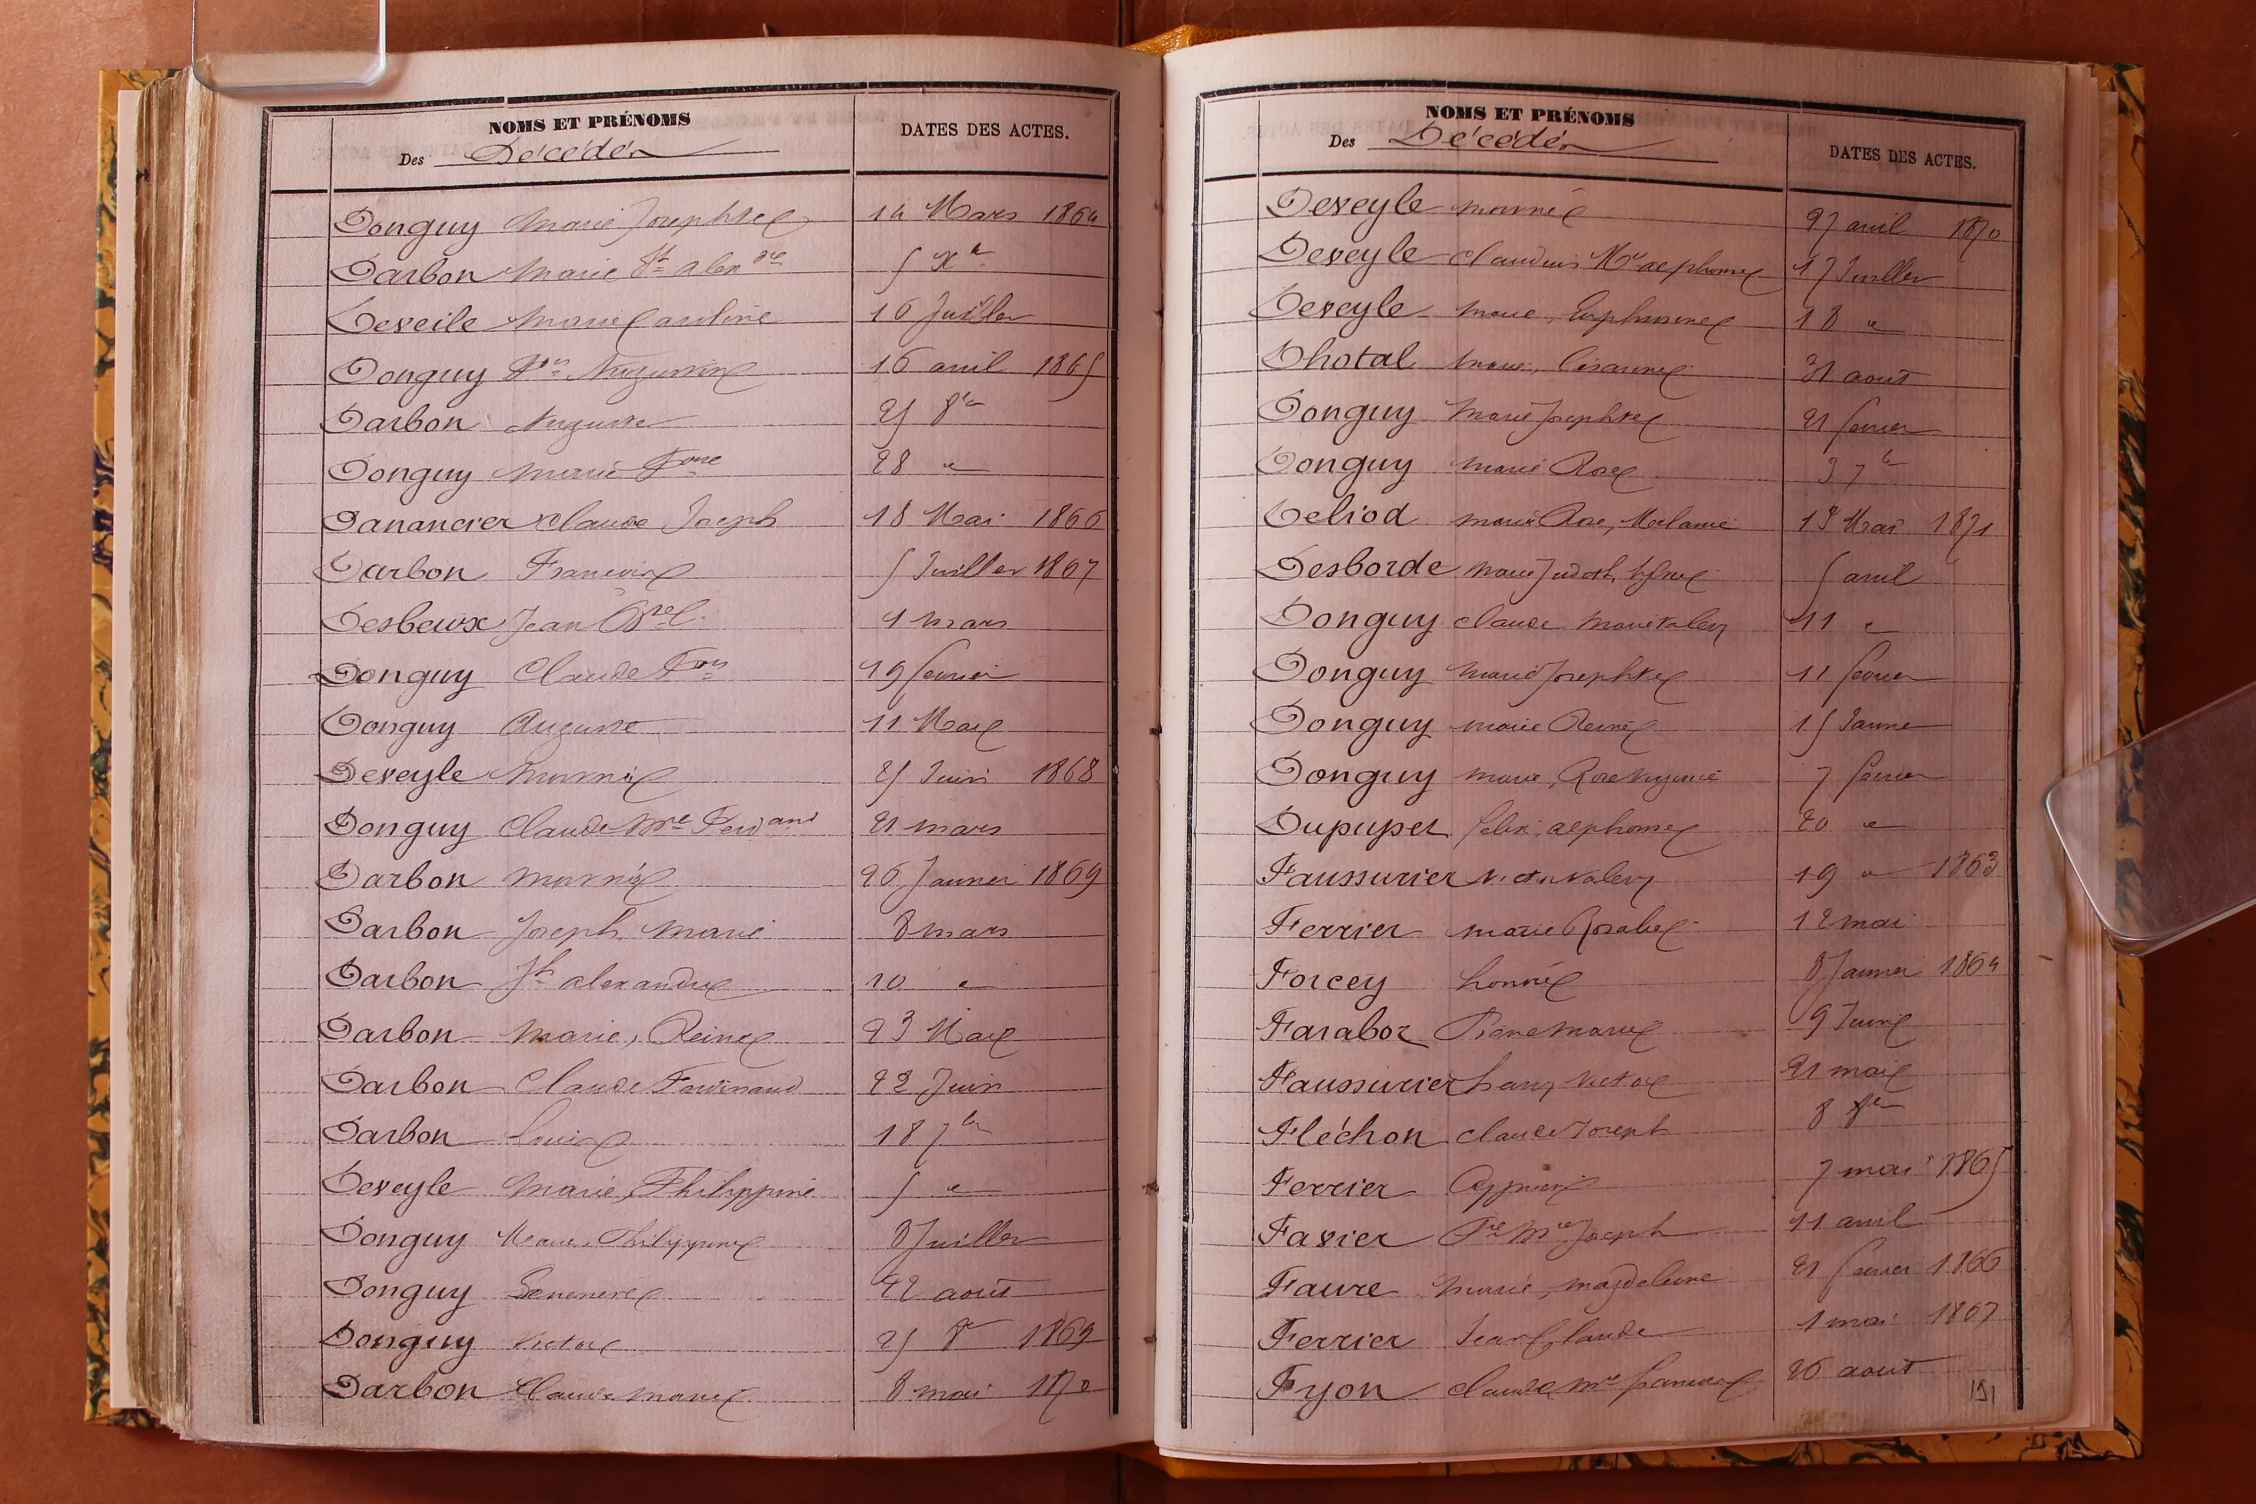 NOMS ET PRÉNOMS
Des Décédés
DATES DES ACTES.
Donguy Marie Josephte 14 Mars 1864
Darbon Marie Alexdre 5 Xbre
Deveile Marie Caroline 16 Juillet
Donguy Augustine 16 avril 1865
Darbon Auguste 25 8bre
Donguy Marie 28 "
Danancier Claude Joseph 18 Mai 1866
Darbon Francoise 5 Juillet 1867
Desbeux Jean 4 mars
Donguy Claude Fois 19 fevrier
Donguy Auguste 11 Mai
Deveyle Mornné 25 Juin 1868
Donguy Claude Mie Ferdand 21 mars
Darbon Mornné 26 Janvier 1869
Darbon Joseph Marie 8 mars
Darbon Jh alexandre 10 "
Darbon Marie, Reine 23 Mai
Darbon Claude Ferdinand 22 Juin
Darbon Louise 18 7bre
Deveyle Marie, Philippine 5 "
Donguy Marie, Philippine 8 Juillet
Donguy Genevieve 22 aout
Donguy Victor 25 8bre 1869
Darbon Claude Marie 8 mai 1870
NOMS ET PRÉNOMS
Des Décédés
DATES DES ACTES.
Deveyle mornné 27 avril 1870
Deveyle Claudius Mie alphonse 17 Juillet
Deveyle Marie, Euphrosine 18 "
Dhotal Marie, Césarine 31 aout
Donguy Marie Josephte 21 fevrier
Donguy Marie Rose 3 7bre
Deliod Marie Rose, Melanie 13 Mai 1871
Desborde Marie Judith, 5 avril
Donguy Claude Marie Valery 11 "
Donguy Marie Josephte 11 fevrier
Donguy Marie Reine 15 Janvier
Donguy Marie, Rose 7 fevrier
Dupupet felix, alphonse 20 "
Faussurier Victor Valery 19 " 1863
Ferrier Marie Rosalie 12 mai
Forcey honoré 8 Janvier 1864
Faraboz Pierre Marie 9 Juin
Faussurier hany Victor 21 mai
Fléchon Claude Joseph 8 8bre
Ferrier Cyprien 7 mai 1865
Favier Pre Mie Joseph 11 avril
Faure Marie, Magdeleine 21 fevrier 1866
Ferrier Jean Claude 1 mai 1867
Fyon Claude, Mie francois 26 aout
191